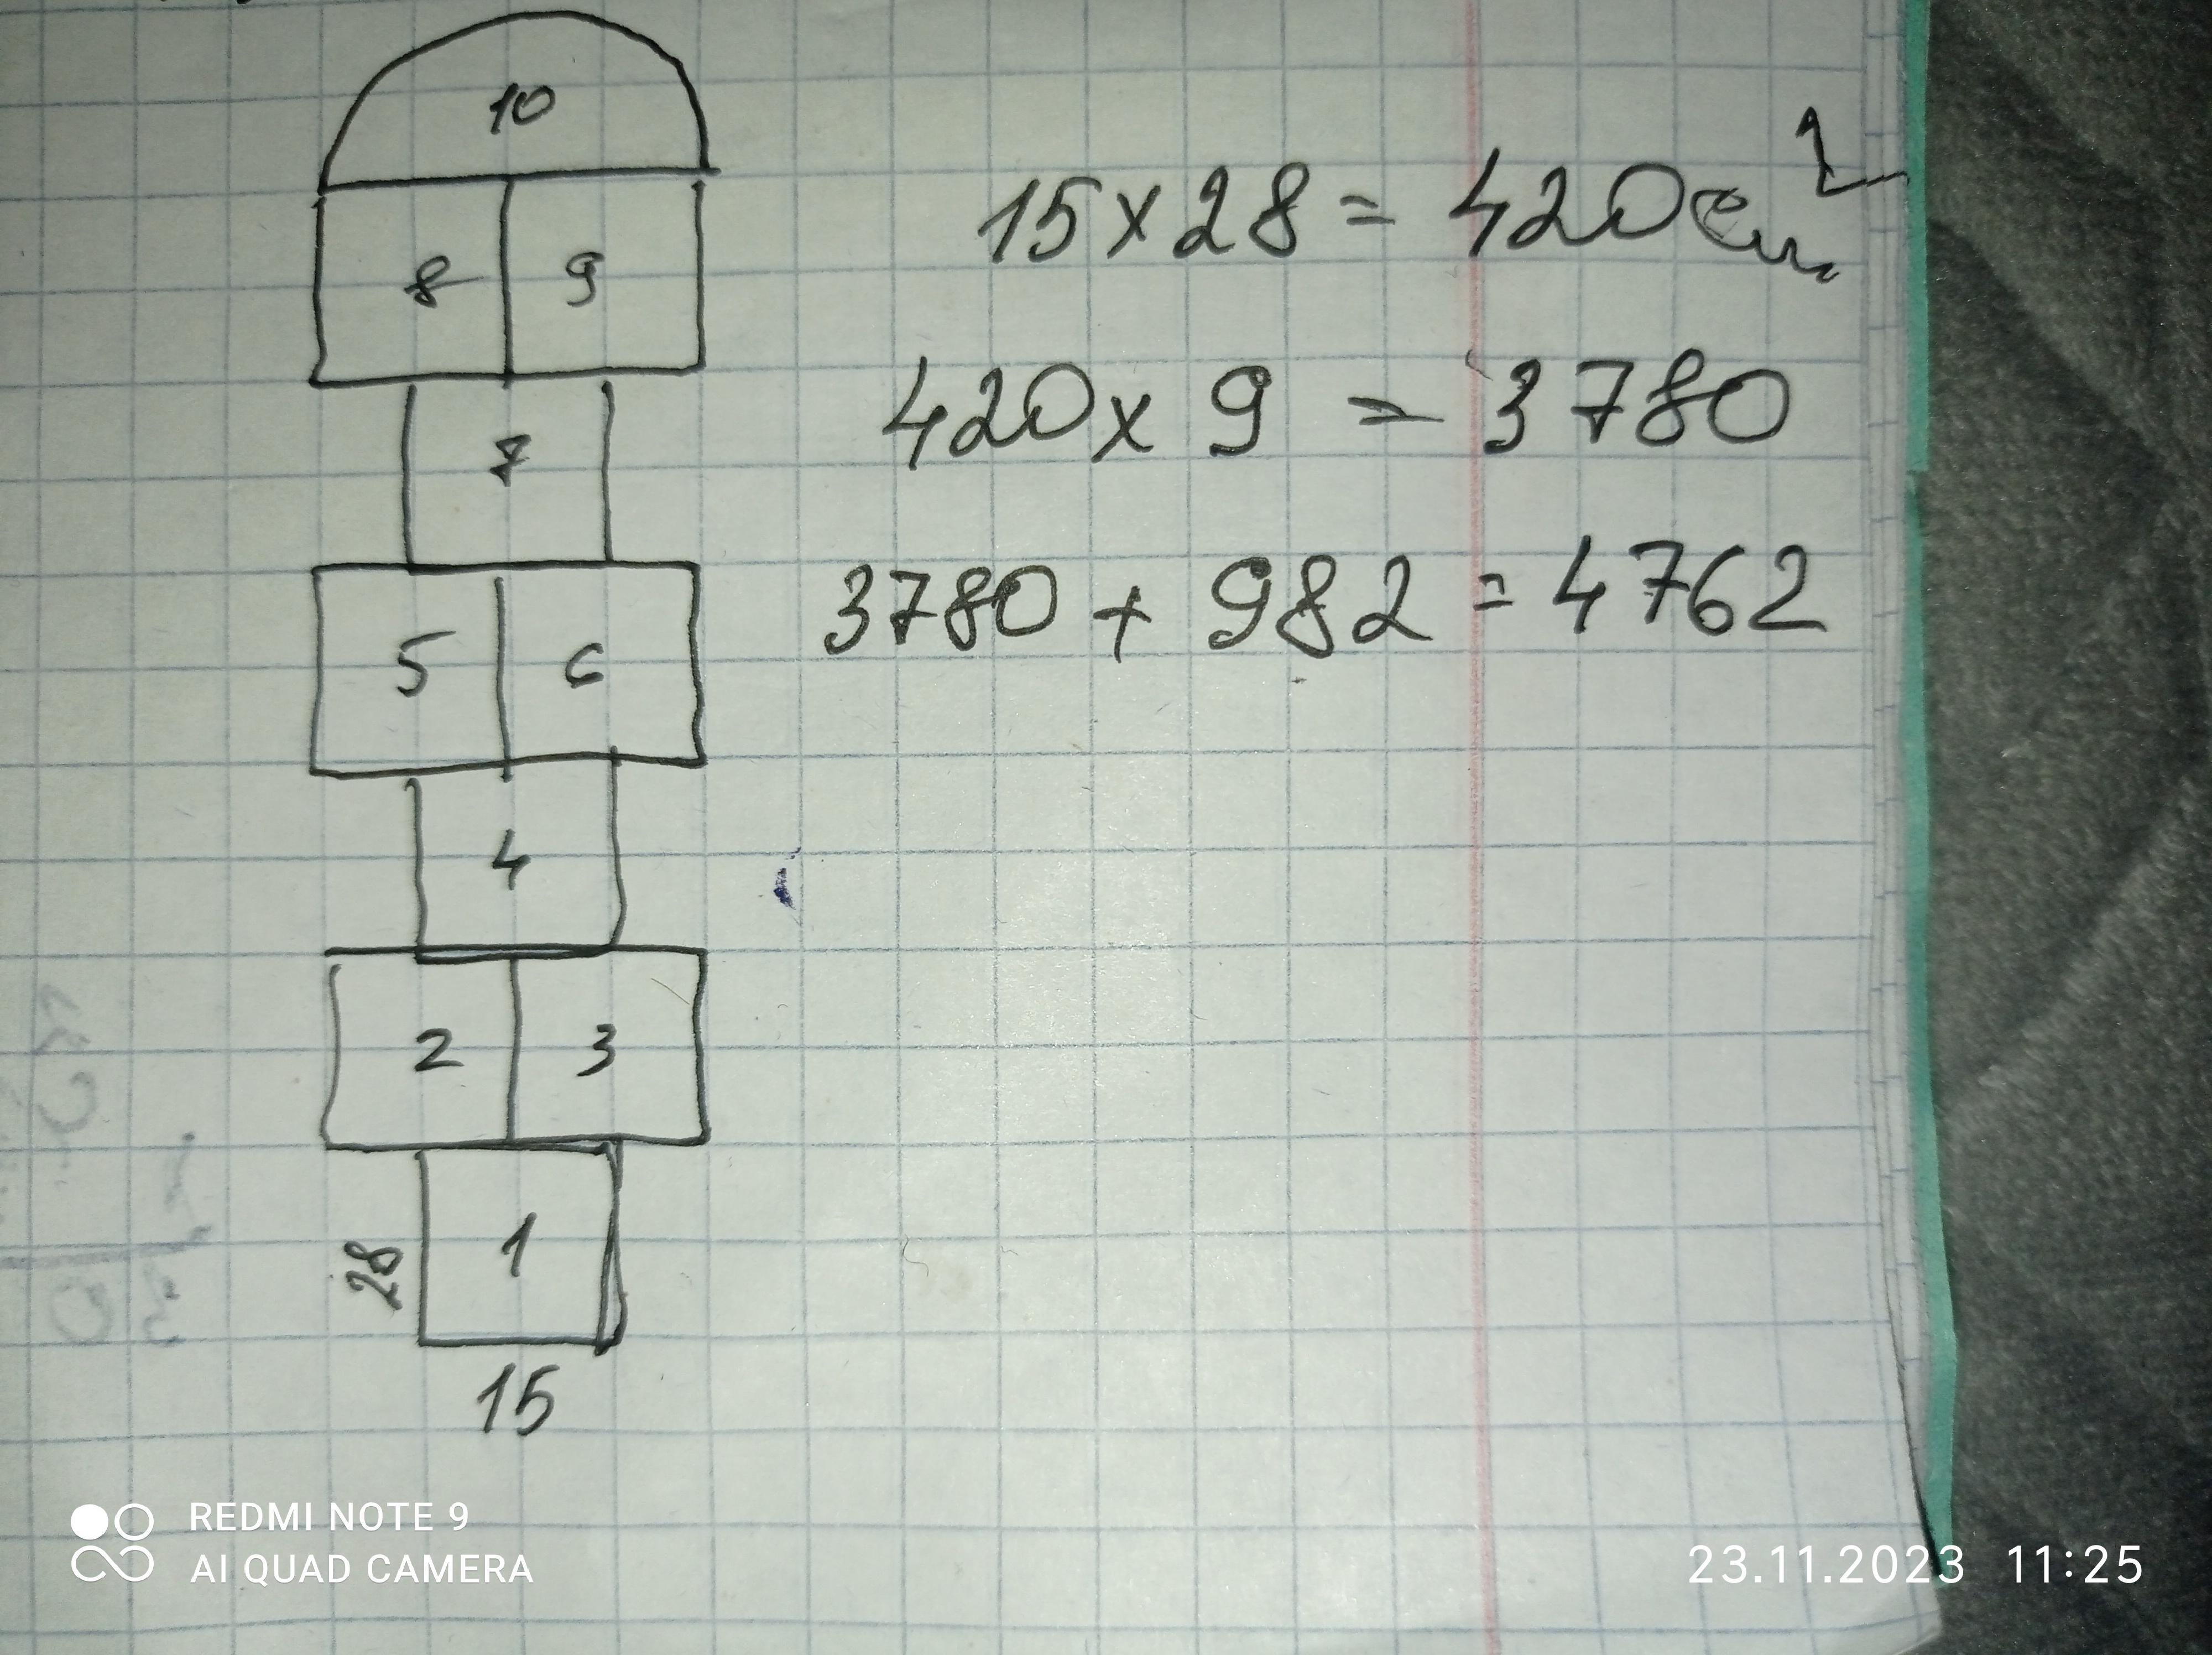 10
15 x 28 = 420 см²
8 9
420 x 9 = 3780
7
3780 + 982 = 4762
5 6
4
2 3
1
28
15
REDMI NOTE 9
AI QUAD CAMERA
23.11.2023 11:25